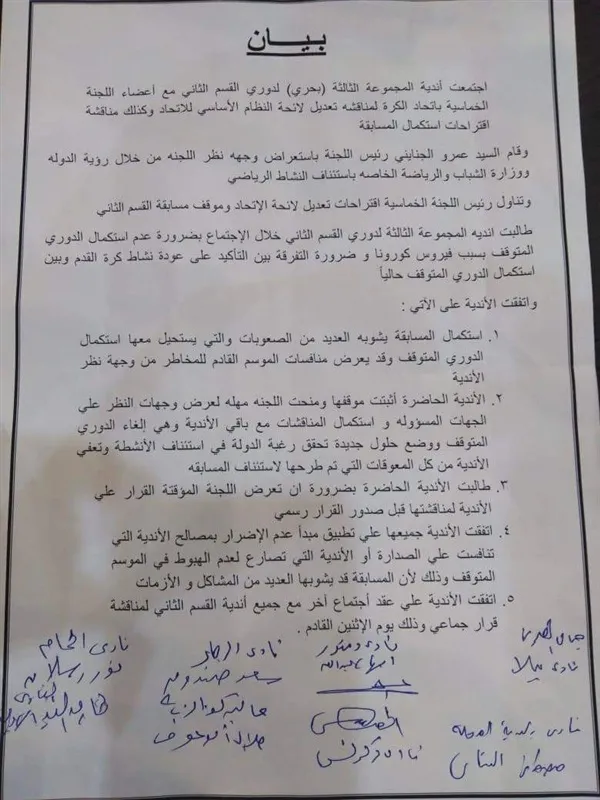 بيـــان
اجتمعت أندية المجموعة الثالثة (بحري) لدوري القسم الثاني مع أعضاء اللجنة
الخماسية باتحاد الكرة لمناقشه تعديل لائحة النظام الأساسي للاتحاد وكذلك مناقشة
اقتراحات استكمال المسابقة
وقام السيد عمرو الجنايني رئيس اللجنة باستعراض وجهه نظر اللجنه من خلال رؤية الدوله
ووزارة الشباب والرياضة الخاصه باستئناف النشاط الرياضي
وتناول رئيس اللجنة الخماسية اقتراحات تعديل لائحة الإتحاد وموقف مسابقة القسم الثاني
طالبت انديه المجموعة الثالثة لدوري القسم الثاني خلال الإجتماع بضرورة عدم استكمال الدوري
المتوقف بسبب فيروس كورونا و ضرورة التفرقة بين التأكيد على عودة نشاط كرة القدم وبين
استكمال الدوري المتوقف حالياً
واتفقت الأندية على الآتي :
١. استكمال المسابقة يشوبه العديد من الصعوبات والتي يستحيل معها استكمال
الدوري المتوقف وقد يعرض منافسات الموسم القادم للمخاطر من وجهة نظر
الأندية
٢. الأندية الحاضرة أثبتت موقفها ومنحت اللجنه مهله لعرض وجهات النظر علي
الجهات المسؤوله و استكمال المناقشات مع باقي الأندية وهي إلغاء الدوري
المتوقف ووضع حلول جديدة تحقق رغبة الدولة في استئناف الأنشطة وتعفي
الأندية من كل المعوقات التي تم طرحها لاستئناف المسابقه
٣. طالبت الأندية الحاضرة بضرورة ان تعرض اللجنة المؤقتة القرار علي
الأندية لمناقشتها قبل صدور القرار رسمي
٤. اتفقت الأندية جميعها علي تطبيق مبدأ عدم الإضرار بمصالح الأندية التي
تنافست علي الصدارة أو الأندية التي تصارع لعدم الهبوط في الموسم
المتوقف وذلك لأن المسابقة قد يشوبها العديد من المشاكل و الأزمات
٥. اتفقت الأندية علي عقد أجتماع أخر مع جميع أندية القسم الثاني لمناقشة
قرار جماعي وذلك يوم الإثنين القادم .
نادى بيلا
نادى دمنهور
نادى الرجاء
نادى الحمام
نادى بلدية المحلة